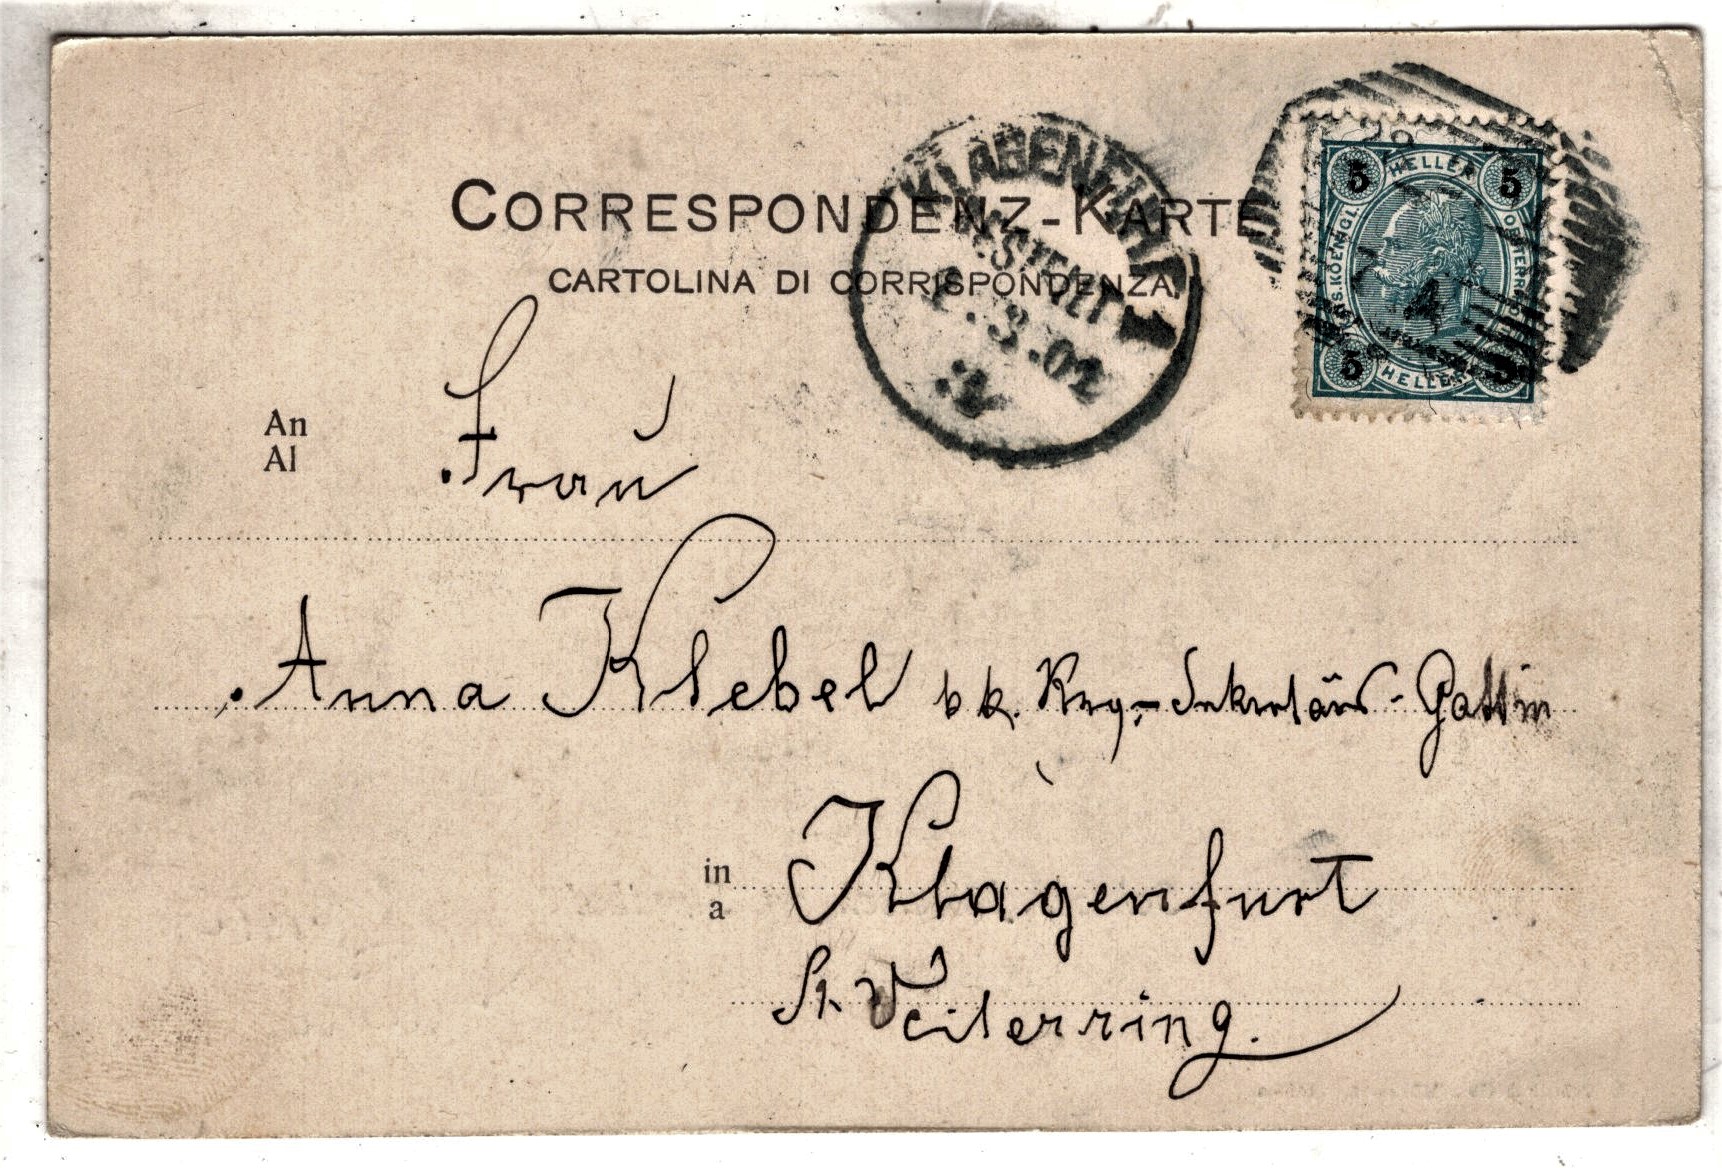 CORRESPONDENZ-KARTE
CARTOLINA DI CORRISPONDENZA.
KLAGENFURT 1
BESTELLT
3.02
5 HELLER 5
5 HELLER 5
An
Al
Frau
Anna Klebel k. k. Reg.-Sekretärs-Gattin
in
a
Klagenfurt
St. Veiterring.